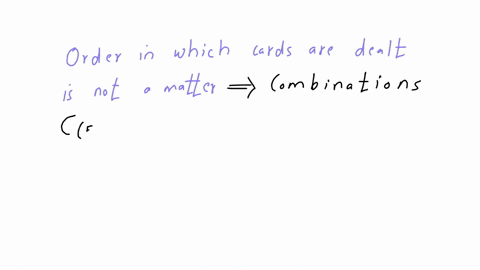 Order in which cards are dealt
is not a matter ⟹ Combinations
C(